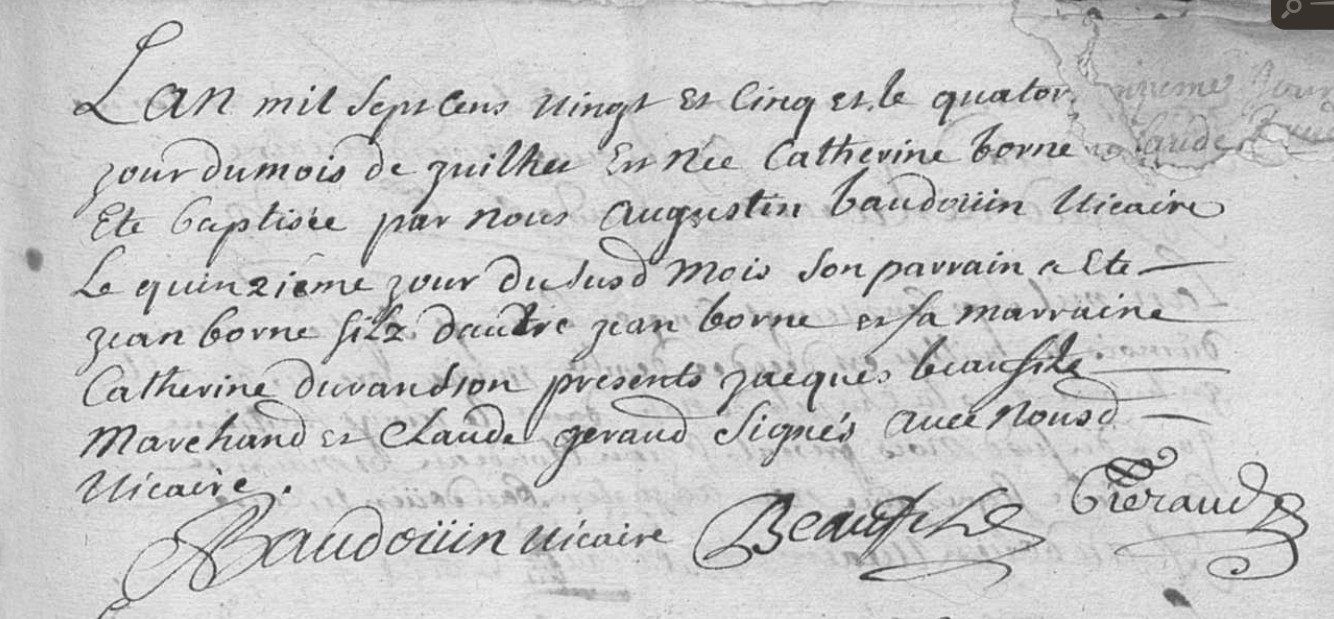 Lan mil Sept Cens Vingt Et Cinq et le quator
jour du mois de juilhet Est Née Catherine borne
Ete baptisée par nous Augustin baudoüin Vicaire
Le quinzième jour du susd mois Son parrain a Ete
jean borne filz dautre jean borne et sa marraine
Catherine durandson presents jacques beaufils
Marchand et Claude geraud Signés avec Nousd
Vicaire.
Baudoüin Vicaire Beaufils Geraud